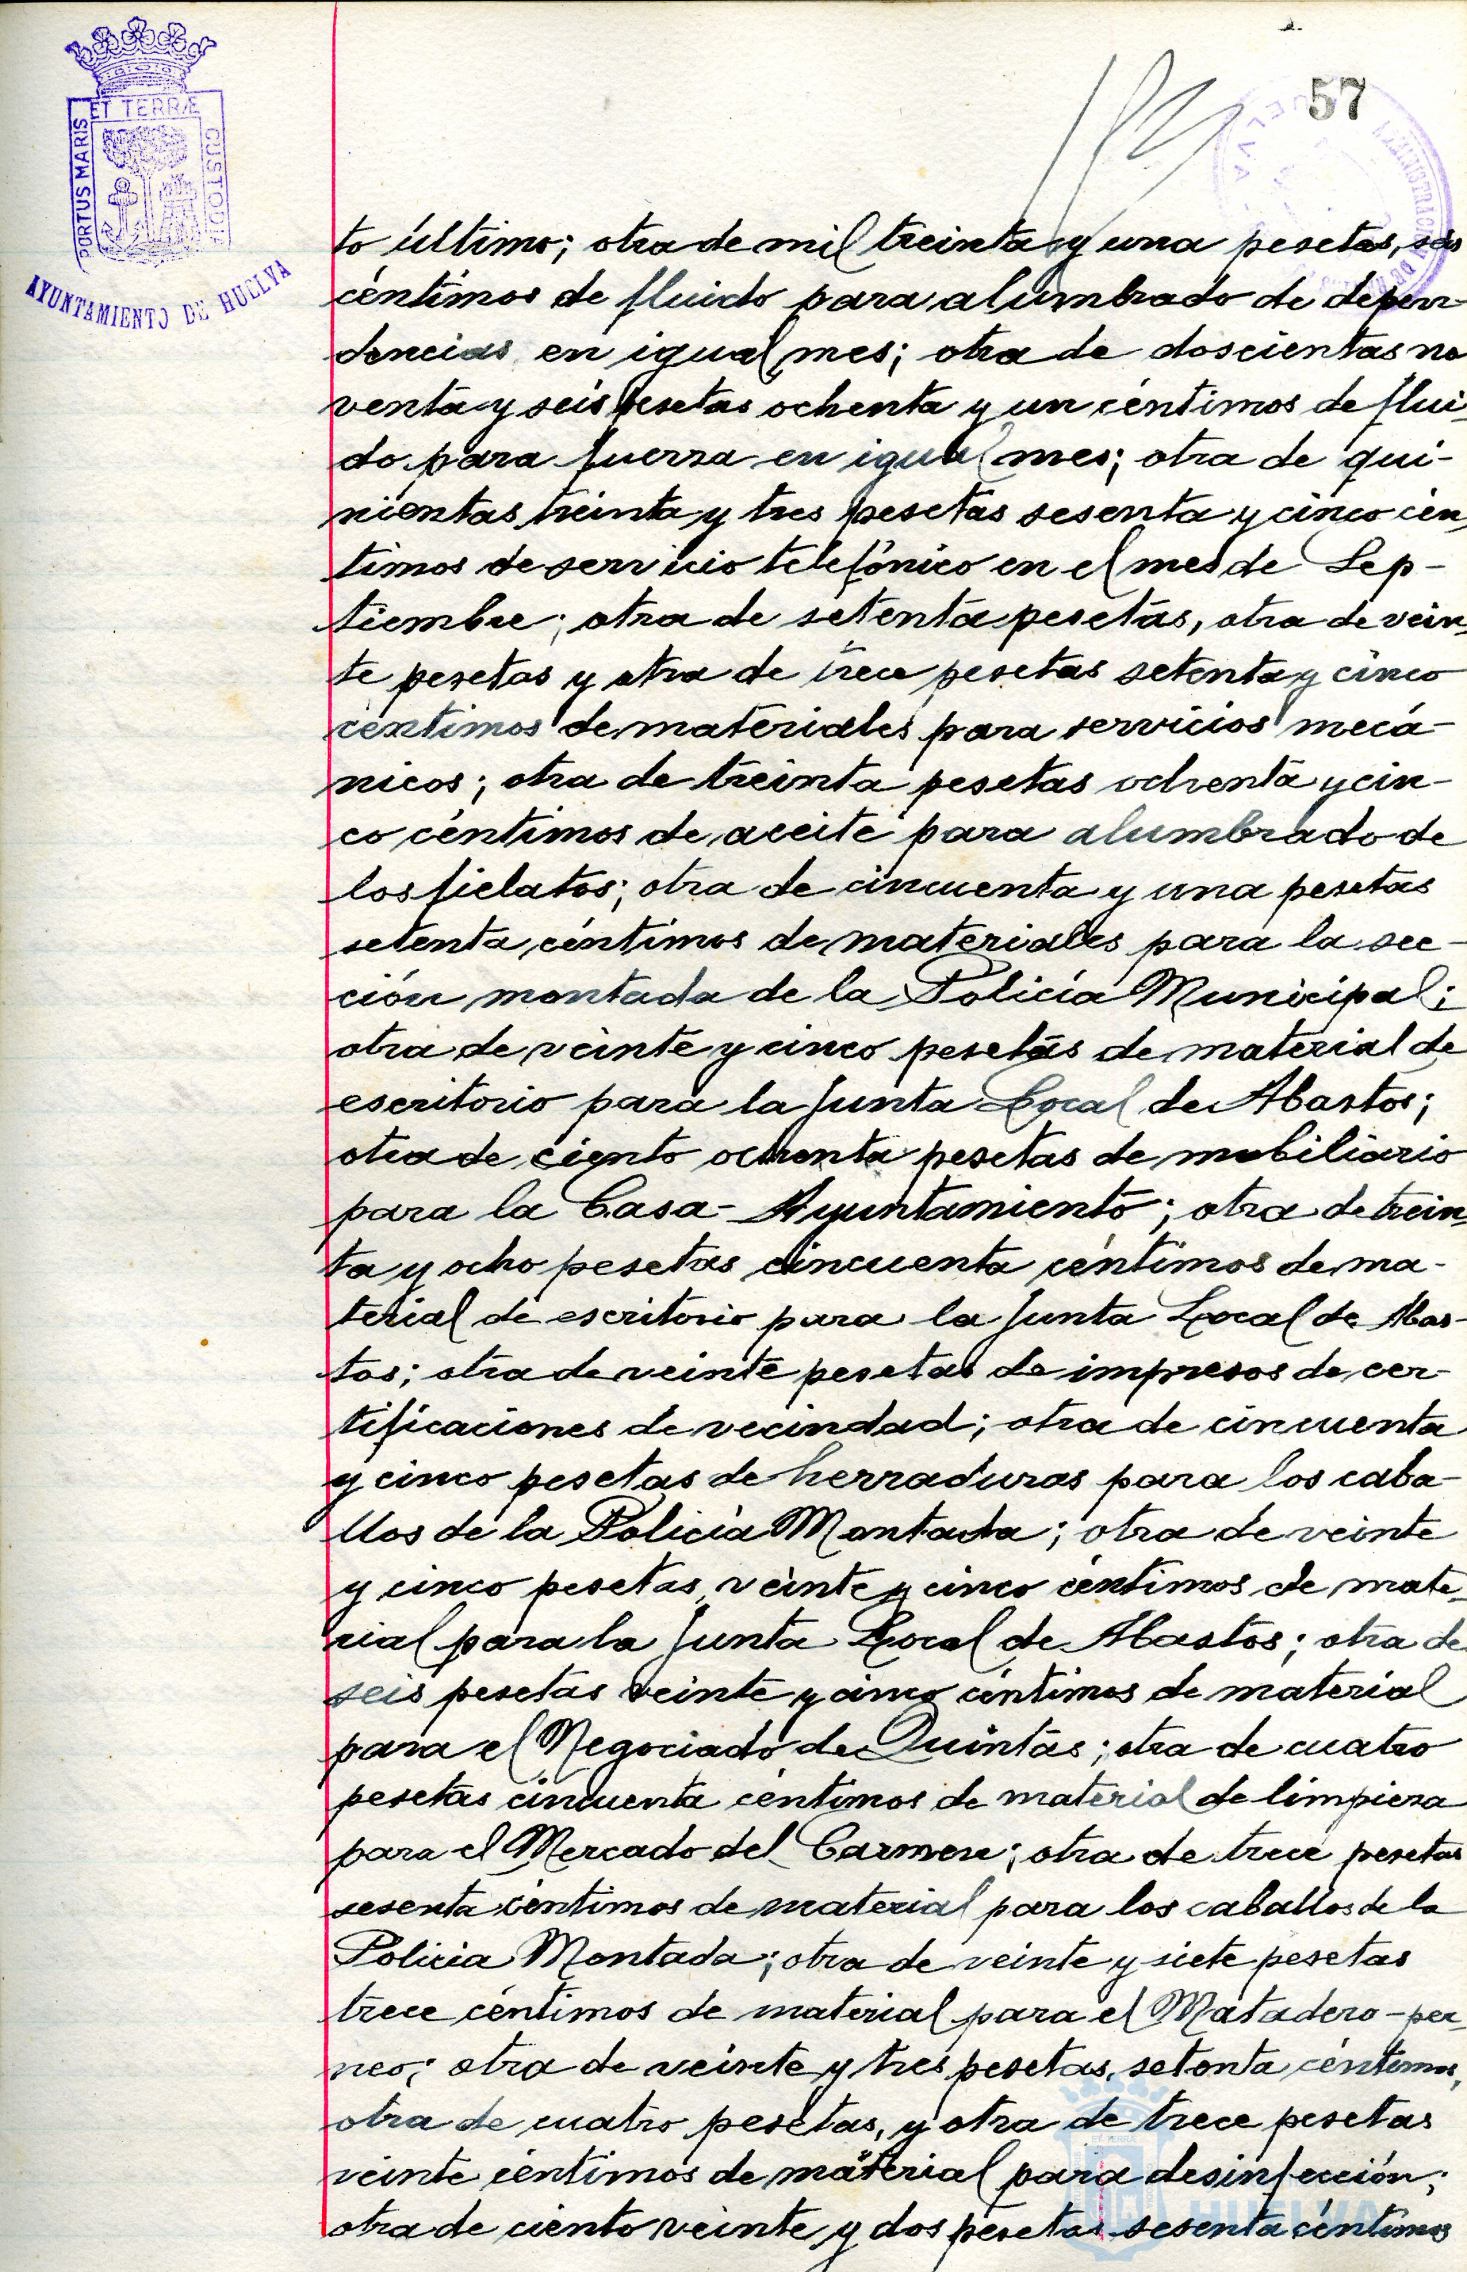 ET TERRÆ
PORTUS MARIS
CUSTODIA
AYUNTAMIENTO DE HUELVA
57
to último; otra de mil treinta y una pesetas, seis
céntimos de fluido para alumbrado de depen-
dencias en igual mes; otra de doscientas no
venta y seis pesetas ochenta y un céntimos de flui-
do para fuerza en igual mes; otra de qui-
nientas treinta y tres pesetas sesenta y cinco cén-
timos de servicio telefónico en el mes de Sep-
tiembre; otra de setenta pesetas, otra de vein-
te pesetas y otra de trece pesetas setenta y cinco
céntimos de materiales para servicios mecá-
nicos; otra de treinta pesetas ochenta y cin-
co céntimos de aceite para alumbrado de
los fielatos; otra de cincuenta y una pesetas
setenta céntimos de materiales para la sec-
ción montada de la Policía Municipal;
otra de veinte y cinco pesetas de material de
escritorio para la Junta Local de Abastos;
otra de ciento ochenta pesetas de mobiliario
para la Casa-Ayuntamiento; otra de trein-
ta y ocho pesetas cincuenta céntimos de ma-
terial de escritorio para la Junta Local de Abas-
tos; otra de veinte pesetas de impresos de cer-
tificaciones de vecindad; otra de cincuenta
y cinco pesetas de herraduras para los caba-
llos de la Policía Montada; otra de veinte
y cinco pesetas veinte y cinco céntimos de mate-
rial para la Junta Local de Abastos; otra de
seis pesetas veinte y cinco céntimos de material
para el Negociado de Quintas; otra de cuatro
pesetas cincuenta céntimos de material de limpieza
para el Mercado del Carmen; otra de trece pesetas
sesenta céntimos de material para los caballos de la
Policia Montada; otra de veinte y siete pesetas
trece céntimos de material para el Matadero-per-
neo; otra de veinte y tres pesetas, setenta céntimos,
otra de cuatro pesetas, y otra de trece pesetas
veinte céntimos de material para desinfección;
otra de ciento veinte y dos pesetas sesenta céntimos
HUELVA